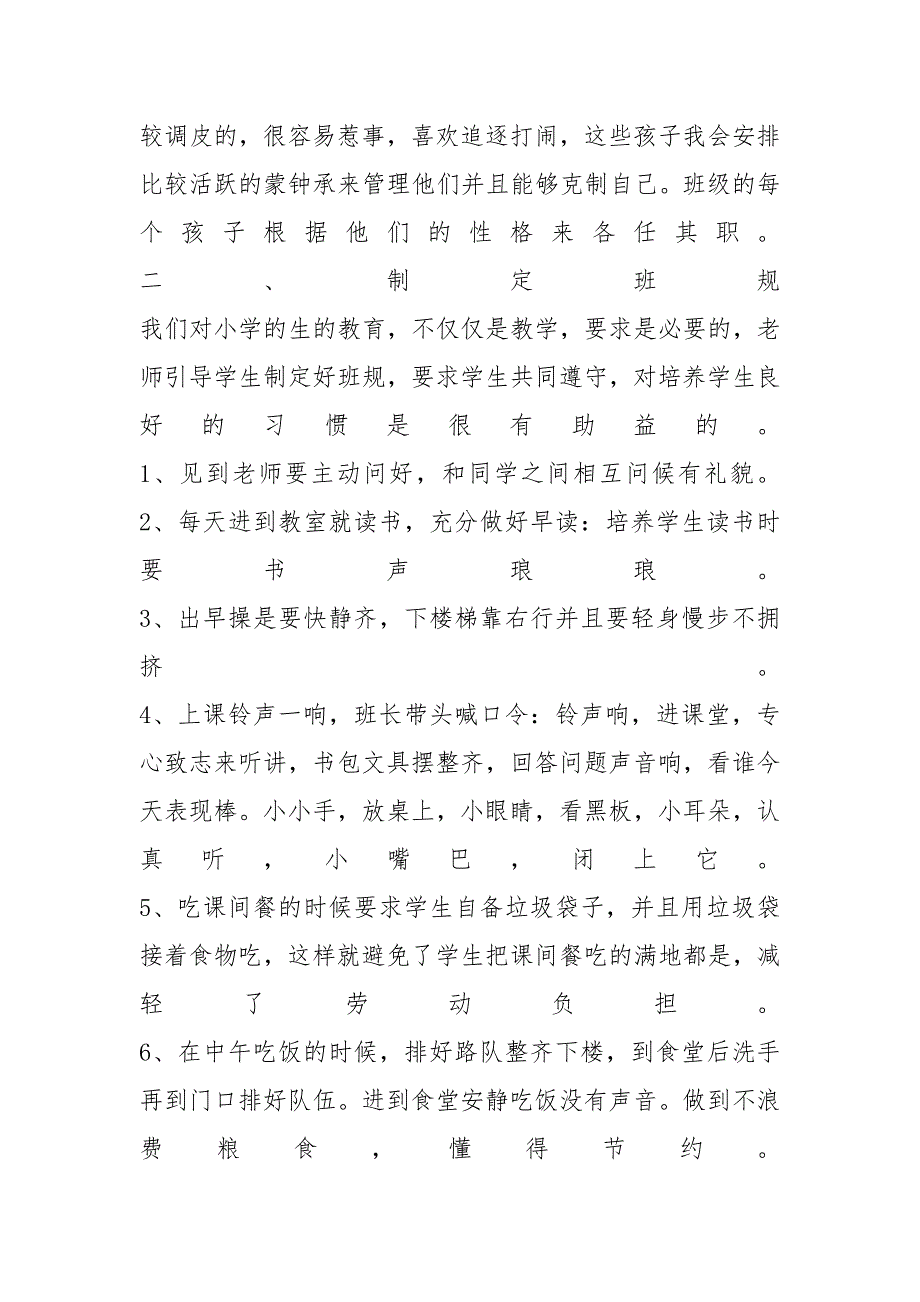 较调皮的，很容易惹事，喜欢追逐打闹，这些孩子我会安排
比较活跃的蒙钟承来管理他们并且能够克制自己。班级的每
个孩子根据他们的性格来各任其职。
二、制定班规
我们对小学的生的教育，不仅仅是教学，要求是必要的，老
师引导学生制定好班规，要求学生共同遵守，对培养学生良
好的习惯是很有助益的。
1、见到老师要主动问好，和同学之间相互问候有礼貌。
2、每天进到教室就读书，充分做好早读：培养学生读书时
要书声琅琅。
3、出早操是要快静齐，下楼梯靠右行并且要轻身慢步不拥
挤。
4、上课铃声一响，班长带头喊口令：铃声响，进课堂，专
心致志来听讲，书包文具摆整齐，回答问题声音响，看谁今
天表现棒。小小手，放桌上，小眼睛，看黑板，小耳朵，认
真听，小嘴巴，闭上它。
5、吃课间餐的时候要求学生自备垃圾袋子，并且用垃圾袋
接着食物吃，这样就避免了学生把课间餐吃的满地都是，减
轻了劳动负担。
6、在中午吃饭的时候，排好路队整齐下楼，到食堂后洗手
再到门口排好队伍。进到食堂安静吃饭没有声音。做到不浪
费粮食，懂得节约。